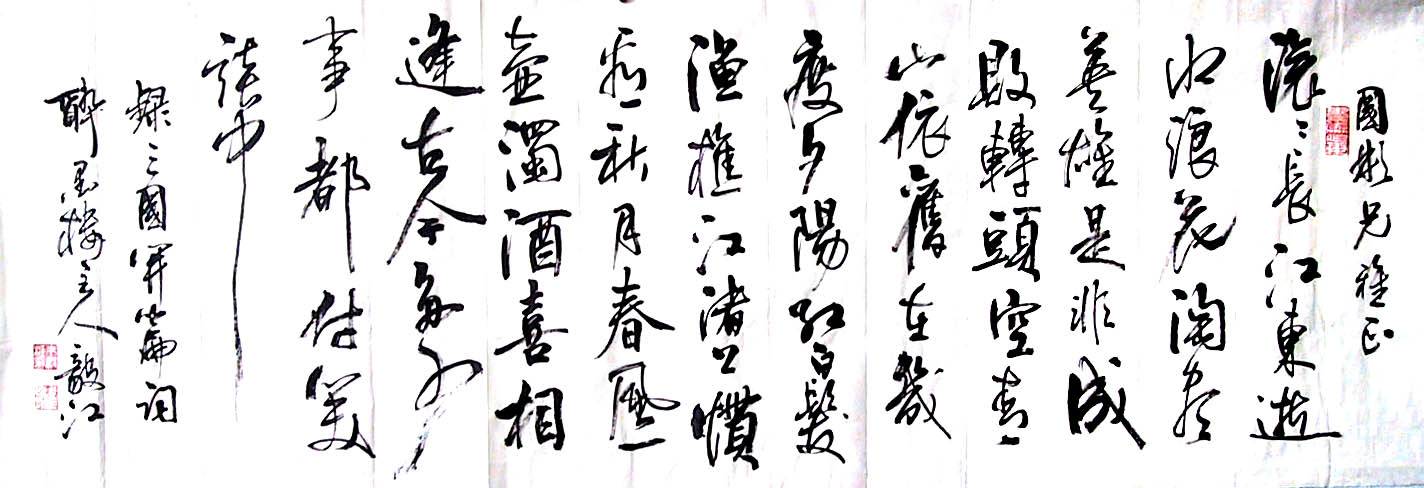 國彬兄雅正
滚〻長江東逝
水浪花淘盡
英雄是非成
敗轉頭空青
山依舊在幾
度夕陽紅白髮
漁樵江渚上慣
看秋月春風
壶濁酒喜相
逢古今多少
事都付笑
談中
錄三國開篇词
醉墨樓主人毅江